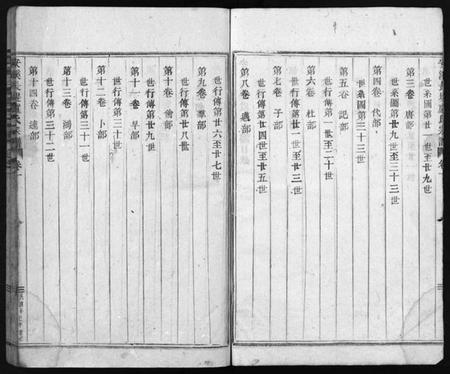 世系圖第廿一世至廿九世
第三卷 唐部
世系圖第廿九世至三十三世
第四卷 代部
世系圖第三十三世
第五卷 記部
世行傳第一世至二十世
第六卷 杜部
世行傳第廿一世至廿三世
第七卷 子部
世行傳第廿四世至廿五世
第八卷 部
世行傳第廿六世至廿七世
第九卷 部
世行傳第廿八世
第十卷 部
世行傳第廿九世
第十一卷 部
世行傳第三十世
第十二卷 卜部
世行傳第三十一世
第十三卷 鴻部
世行傳第三十二世
第十四卷 部